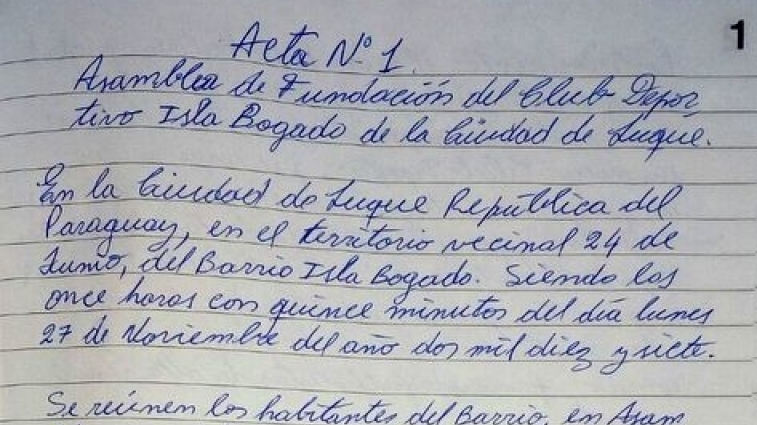 1
Acta N.º 1
Asamblea de Fundación del Club Depor,
tivo Isla Bogado de la Ciudad de Luque.
En la Ciudad de Luque República del
Paraguay, en el territorio vecinal 24 de
Junio, del Barrio Isla Bogado. Siendo las
once horas con quince minutos del día lunes
27 de Noviembre del año dos mil diez y siete.
Se reúnen los habitantes del Barrio, en Asam